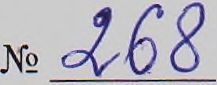 № 268